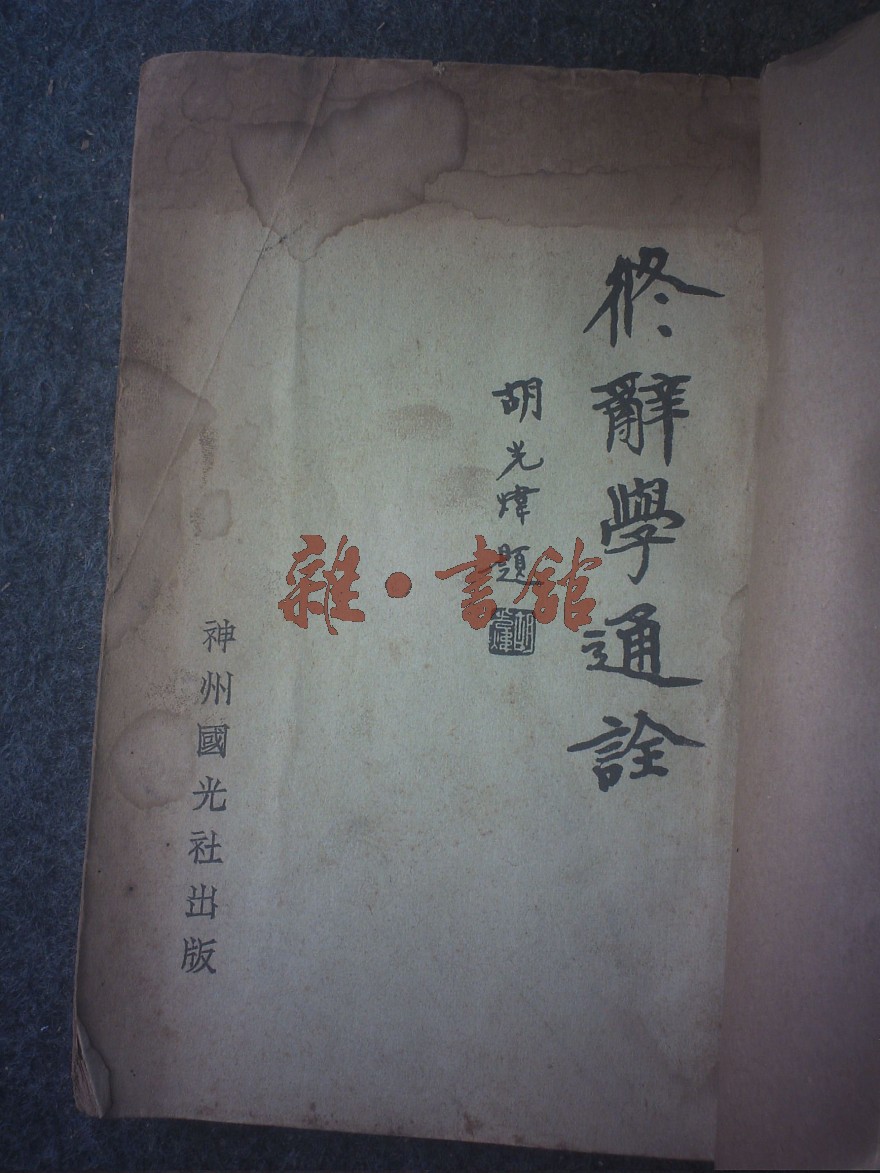 修辭學通詮
胡光煒題
胡光煒
神州國光社出版
雜·書館